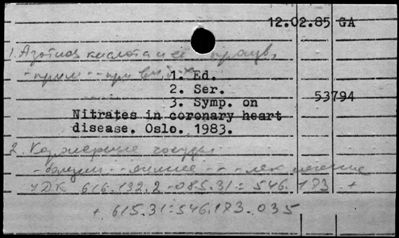 12.02.85 GA
1. Азотная кислота и её произв.
- прим. - при
1. Ed.
2. Ser.
3. Symp. on 53794
Nitrates in coronary heart
disease. Oslo. 1983.
2. Коронарные сосуды
- лечение
УДК 616.132.2-085.31:546.173 +
+ 615.31:546.173.035